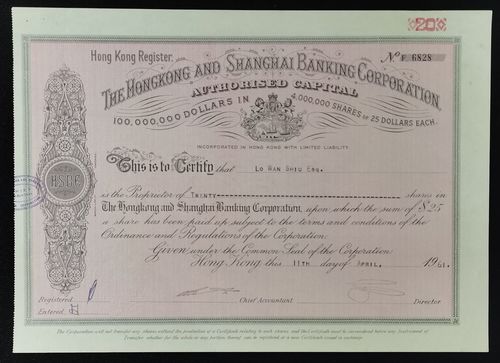 20
Hong Kong Register.
No. F 6828
THE HONGKONG AND SHANGHAI BANKING CORPORATION
AUTHORISED CAPITAL
100,000,000 DOLLARS IN 4,000,000 SHARES OF 25 DOLLARS EACH.
INCORPORATED IN HONG KONG WITH LIMITED LIABILITY
This is to Certify that LO HAN SHIU ESQ.
is the Proprietor of TWENTY shares in
The Hongkong and Shanghai Banking Corporation, upon which the sum of $25
a share has been paid up subject to the terms and conditions of the
Ordinance and Regulations of the Corporation.
Given under the Common Seal of the Corporation
Hong Kong this 11TH day of APRIL, 1961.
HSBC
Registered
Entered
Chief Accountant
Director
The Corporation will not transfer any shares without the production of a Certificate relating to such shares, and the Certificate must be surrendered before any Instrument of
Transfer whether for the whole or any portion thereof can be registered or a new Certificate issued in exchange.